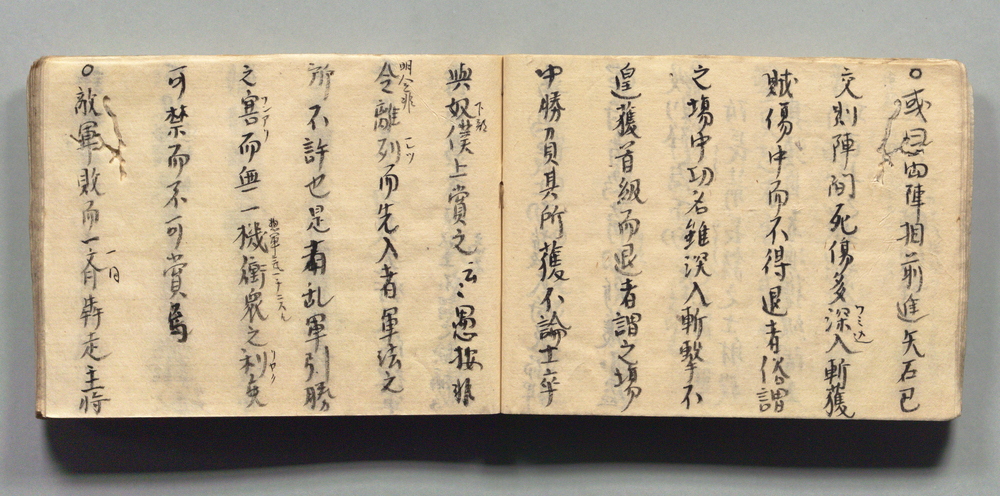 ○或思両陣相前進矢石已
交則陣間死傷多深入斬獲
賊傷中而不得退者俗謂
之場中功名雖深入斬撃不
遑獲首級而退者謂之場
中勝負其所獲不論士卒
與奴僕上賞之云々愚按非
令離列而先入者軍法之
所不許也是者乱軍引勝
之害而無一機衝衆之利
可禁而不可賞焉
○敵軍敗而一斉奔走主将